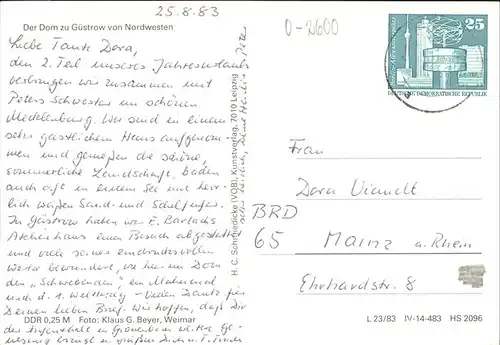 25.8.83
0-2600
Der Dom zu Güstrow von Nordwesten
25
DEUTSCHE DEMOKRATISCHE REPUBLIK
Liebe Tante Dora,
den 2. Teil unseres Jahresurlaubs
verbringen wir zusammen mit
Peters Schwester im schönen
Mecklenburg. Wir sind in einem
sehr gastlichen Haus aufgenom-
men und genießen die schöne,
sommerliche Landschaft, baden
auch oft in einem See mit herr-
lich weißem Sand- und Schilfufer.
In Güstrow haben wir E. Barlachs
Atelierhaus einen Besuch abgestattet
und viele seiner eindrucksvollen
Werke bewundert, wie hier im Dom
den „Schwebenden", ein Mahnmal
nach d. 1. Weltkrieg - Vielen Dank für
Deinen lieben Brief. Wir hoffen, daß Dir
der Aufenthalt in
H. C. Schmiedicke (VOB), Kunstverlag, 7010 Leipzig
Frau
Dora Viandt
BRD
65 Mainz a. Rhein
Ehrhardstr. 8
DDR 0,25 M Foto: Klaus G. Beyer, Weimar
L 23/83 IV-14-483 HS 2096